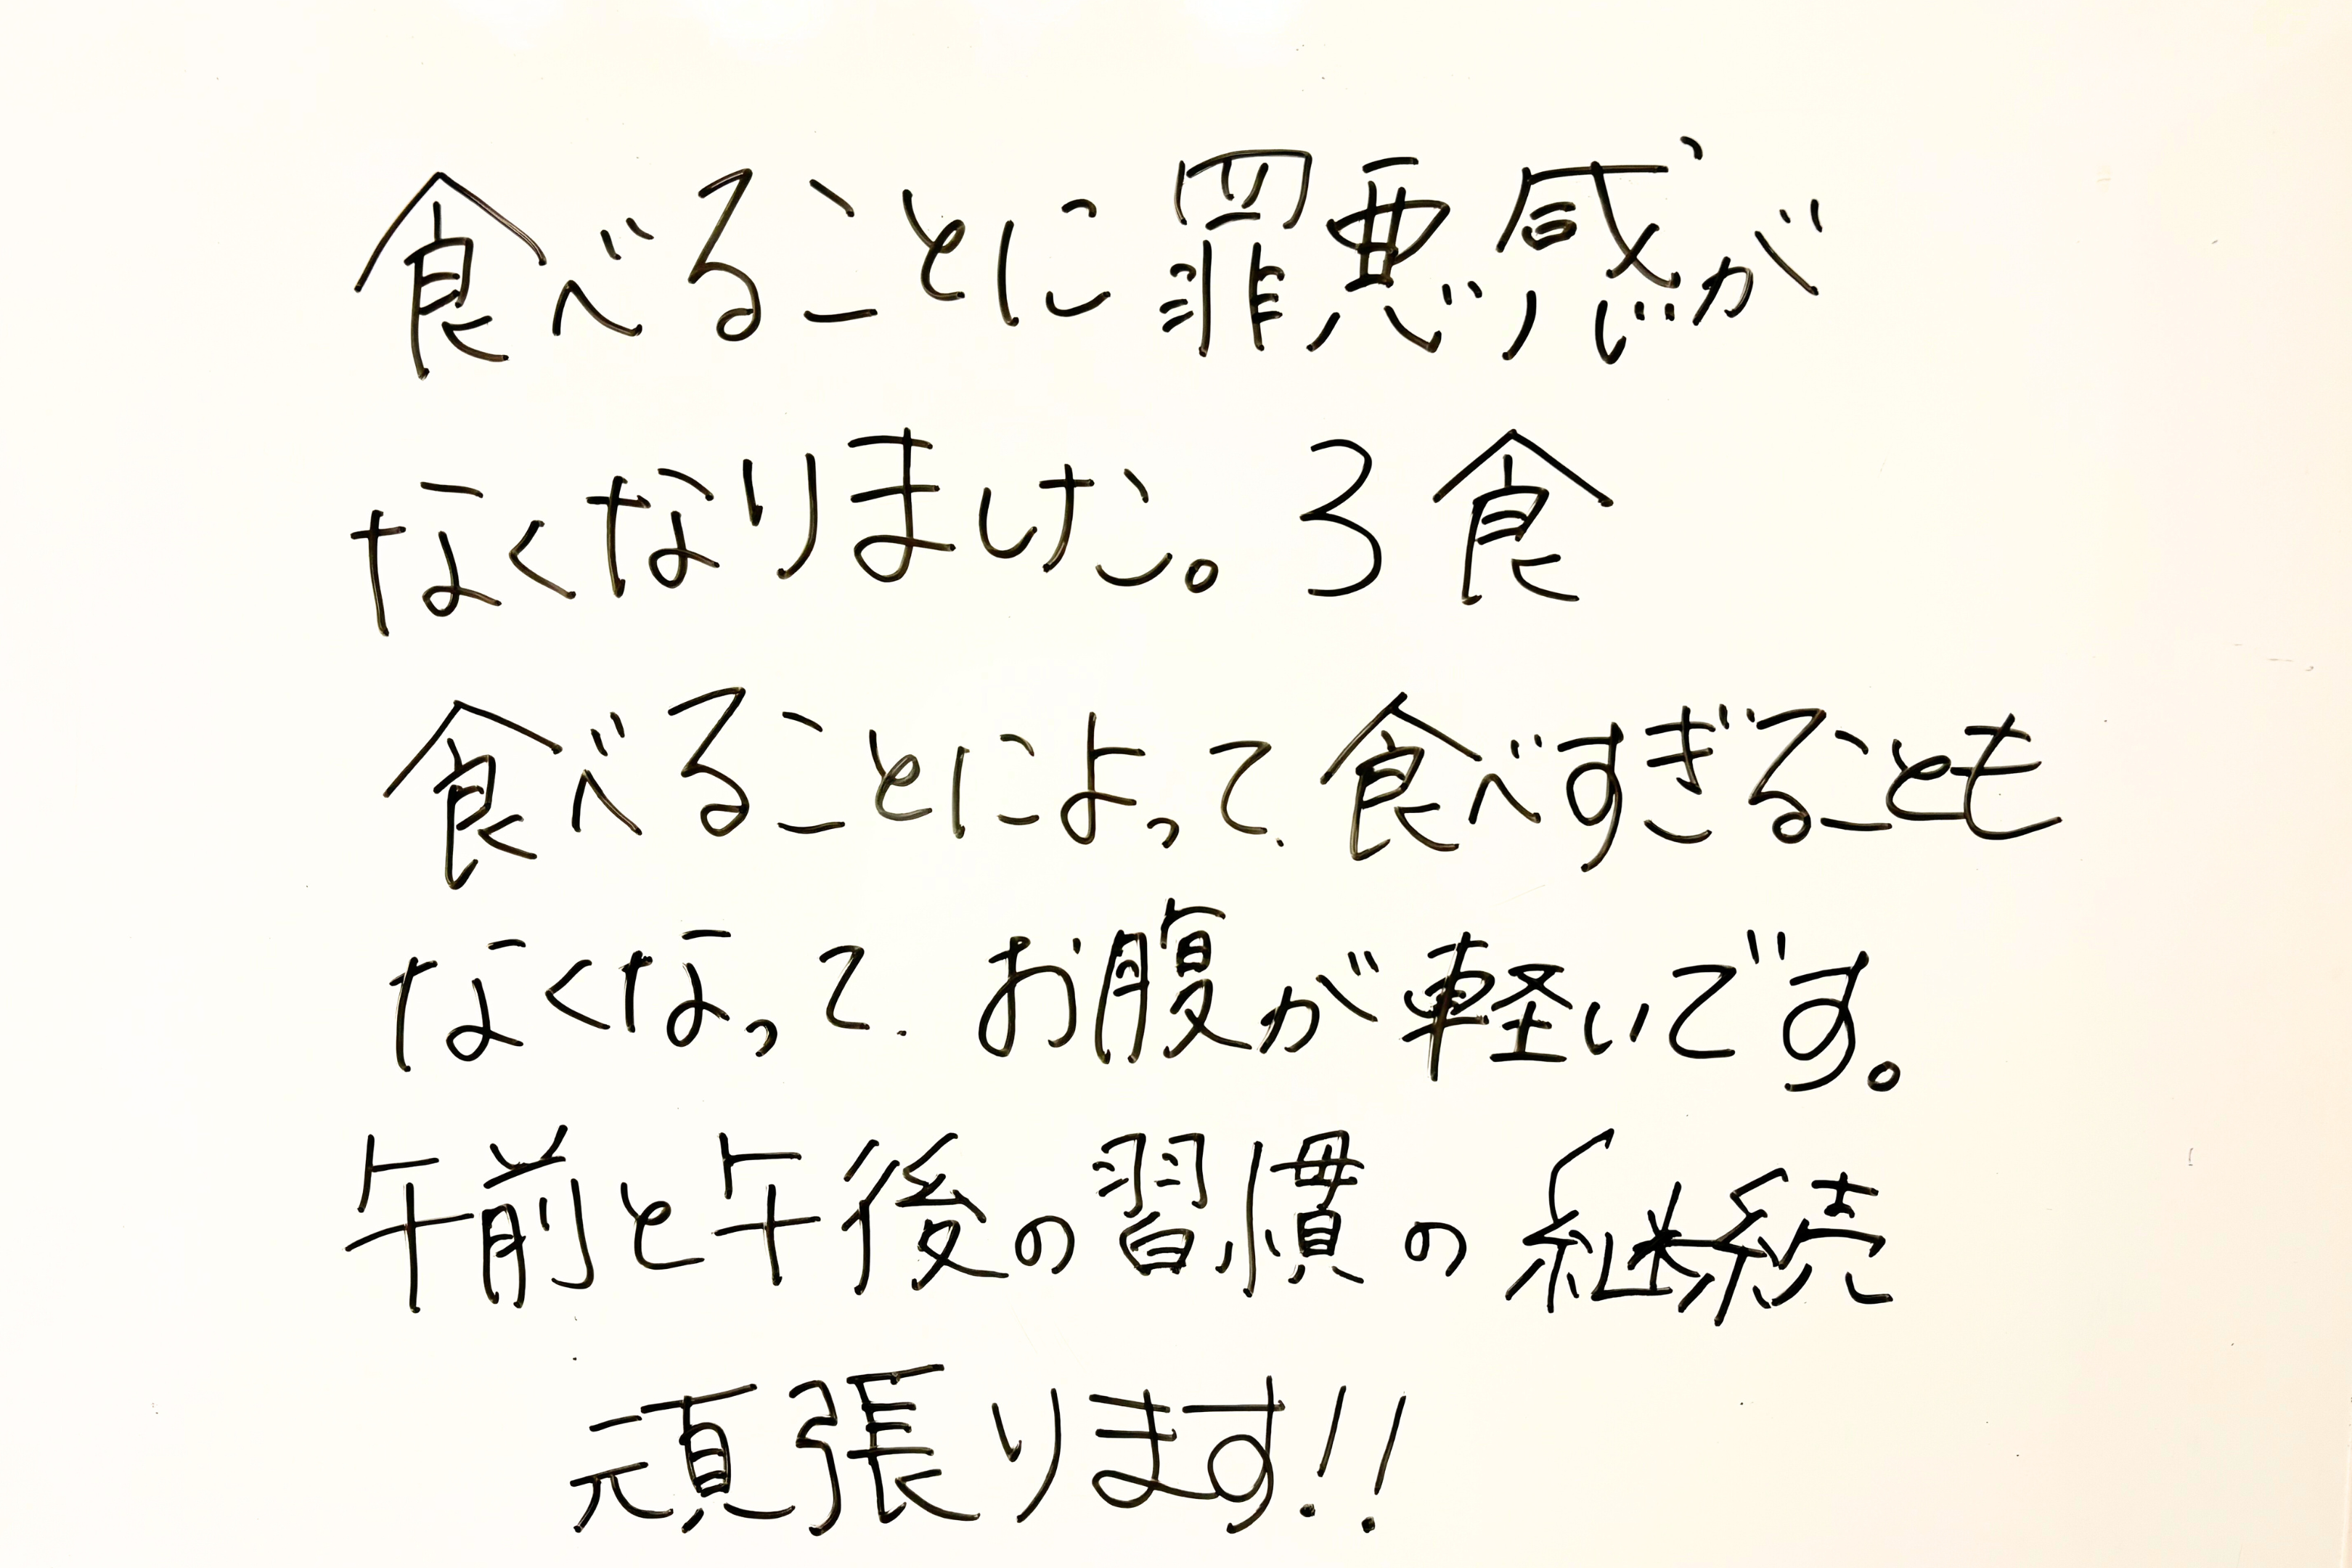 食べることに罪悪感が
なくなりました。3食
食べることによって、食べすぎることも
なくなって、お腹が軽いです。
午前と午後の習慣の継続
頑張ります!!